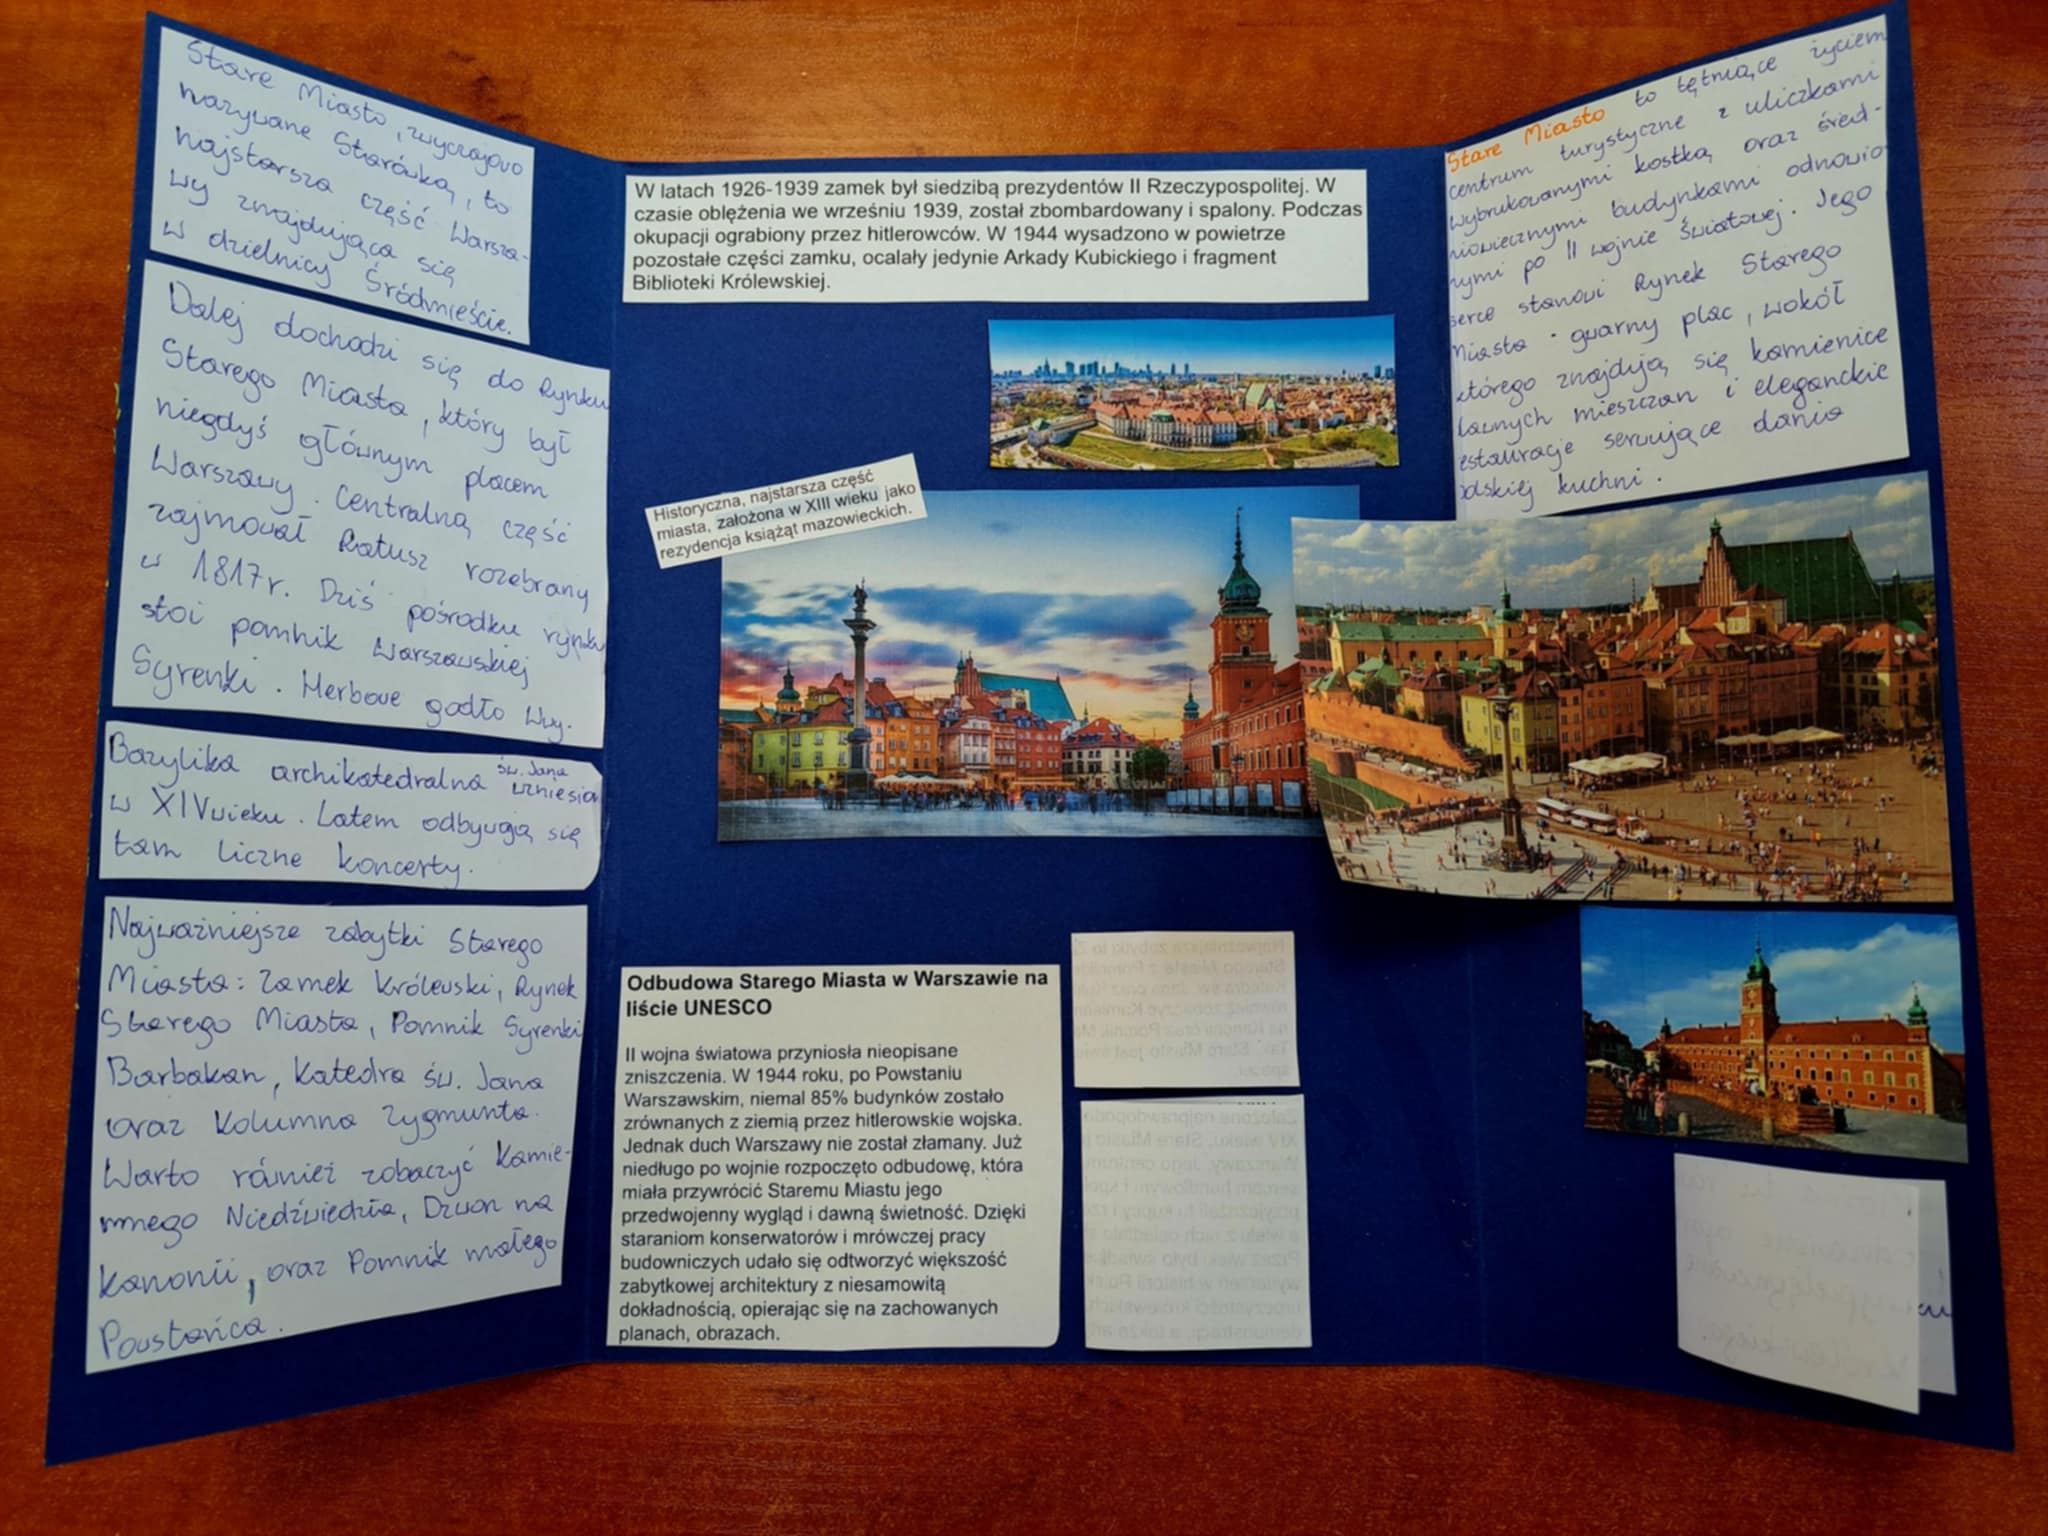 Stare Miasto, zwyczajowo
nazywane Starówką, to
najstarsza część Warsza-
wy znajdująca się
w dzielnicy Śródmieście.
Dalej dochodzi się do Rynku
Starego Miasta, który był
niegdyś głównym placem
Warszawy. Centralną część
zajmował Ratusz rozebrany
w 1817r. Dziś pośrodku rynku
stoi pomnik Warszawskiej
Syrenki. Herbowe godło Wwy.
Bazylika archikatedralna św. Jana
w XIV wieku. Latem odbywają się
tam liczne koncerty.
Najważniejsze zabytki Starego
Miasta: Zamek Królewski, Rynek
Starego Miasta, Pomnik Syrenki
Barbakan, Katedra św. Jana
oraz Kolumna Zygmunta.
Warto również zobaczyć Kamie-
nnego Niedźwiedzia, Dzwon na
Kanonii, oraz Pomnik małego
Powstańca.
W latach 1926-1939 zamek był siedzibą prezydentów II Rzeczypospolitej. W
czasie oblężenia we wrześniu 1939, został zbombardowany i spalony. Podczas
okupacji ograbiony przez hitlerowców. W 1944 wysadzono w powietrze
pozostałe części zamku, ocalały jedynie Arkady Kubickiego i fragment
Biblioteki Królewskiej.
Historyczna, najstarsza część
miasta, założona w XIII wieku jako
rezydencja książąt mazowieckich.
Odbudowa Starego Miasta w Warszawie na
liście UNESCO
II wojna światowa przyniosła nieopisane
zniszczenia. W 1944 roku, po Powstaniu
Warszawskim, niemal 85% budynków zostało
zrównanych z ziemią przez hitlerowskie wojska.
Jednak duch Warszawy nie został złamany. Już
niedługo po wojnie rozpoczęto odbudowę, która
miała przywrócić Staremu Miastu jego
przedwojenny wygląd i dawną świetność. Dzięki
staraniom konserwatorów i mrówczej pracy
budowniczych udało się odtworzyć większość
zabytkowej architektury z niesamowitą
dokładnością, opierając się na zachowanych
planach, obrazach.
Stare Miasto to tętniące życiem
centrum turystyczne z uliczkami
wybrukowanymi kostką oraz śred-
niowiecznymi budynkami odnowio
nymi po II wojnie Światowej. Jego
serce stanowi Rynek Starego
Miasta - gwarny plac, wokół
którego znajdują się kamienice
ławnych mieszczan i eleganckie
estauracje serwujące dania
olskiej kuchni.